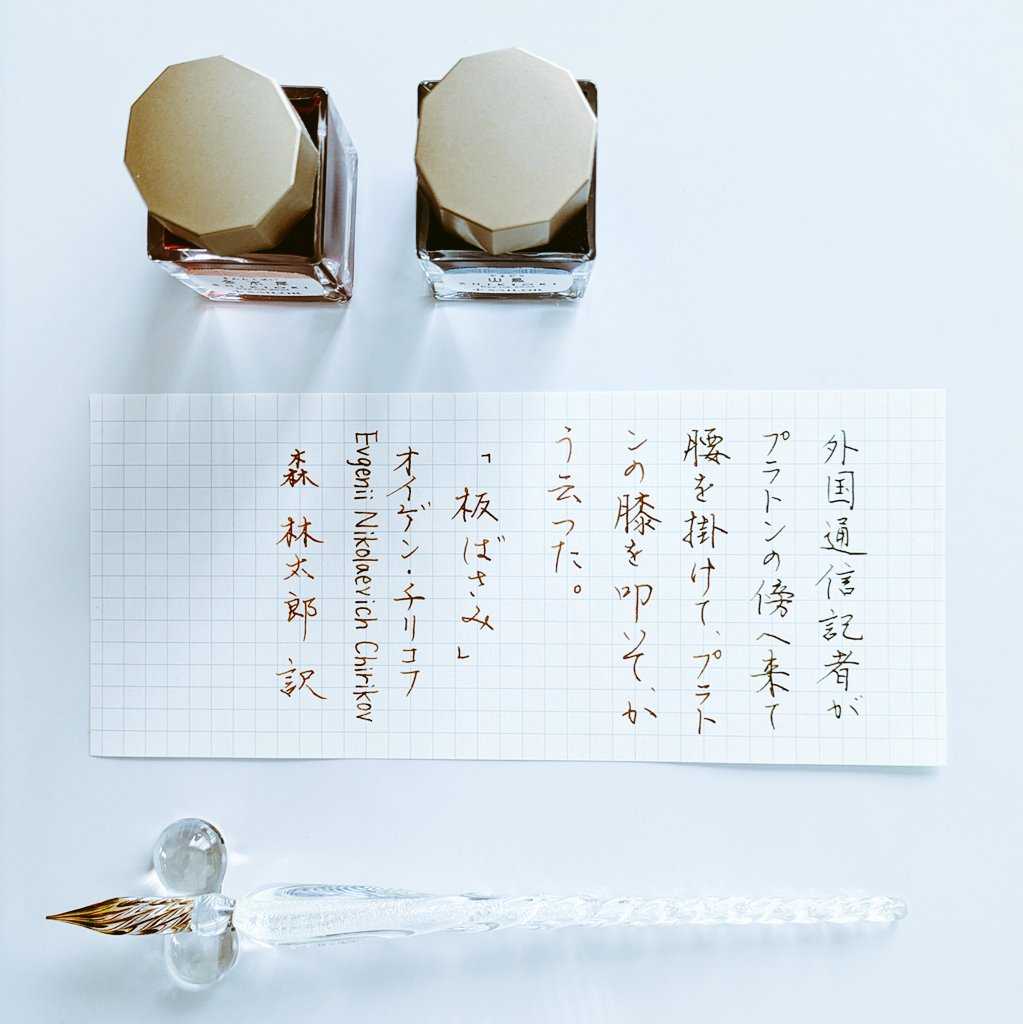 山鳥
SHIKIORI
SAILOR
SHIKIORI
SAILOR
外国通信記者が
プラトンの傍へ来て
腰を掛けて、プラト
ンの膝を叩いて、か
う云つた。
「板ばさみ」
オイゲン・チリコフ
Evgenii Nikolaevich Chirikov
森 林太郎 訳